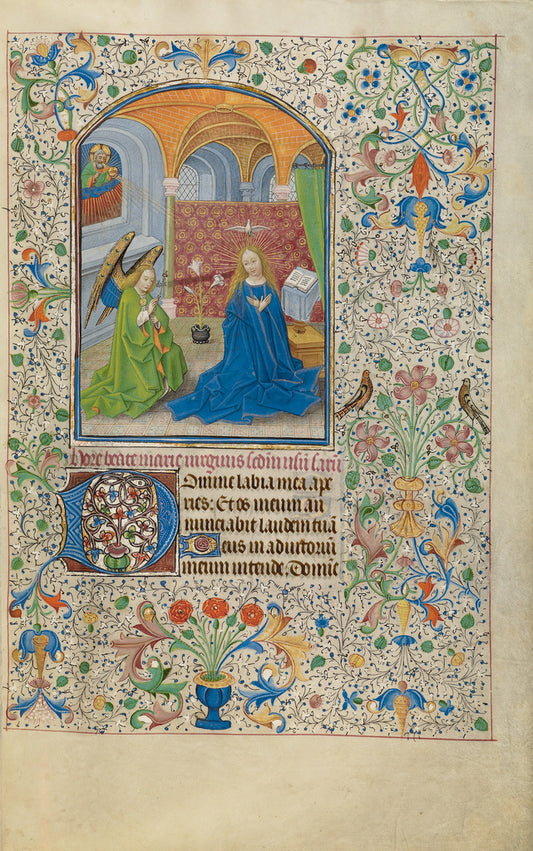 Hore beate marie virginis secdm usū sarū
Domine labia mea ape
ries: Et os meum an
nunciabit laudem tuā
Deus in adiutoriū
meum intende. Domīe